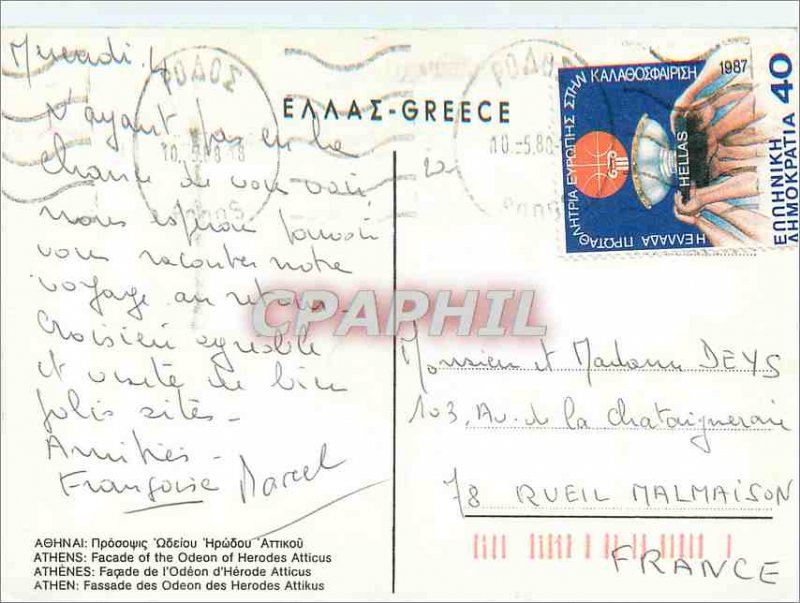 Mercredi 4
N'ayant pas eu la
chance de vous voir,
nous espérons pouvoir
vous raconter notre
voyage au retour.
Croisière agréable
et visite de bien
jolis sites.
Amitiés.
Françoise Marcel
ΑΘΗΝΑΙ: Πρόσοψις Ὠδείου Ἡρώδου Ἀττικοῦ
ATHENS: Facade of the Odeon of Herodes Atticus
ATHÈNES: Façade de l'Odéon d'Hérode Atticus
ATHEN: Fassade des Odeon des Herodes Attikus
ΕΛΛΑΣ-GREECE
ΡΟΔΟΣ
10.-5.88-18
Rodos
ΡΟΔΟΣ
10.-5.88-
Rodos
Η ΕΛΛΑΔΑ ΠΡΩΤΑΘΛΗΤΡΙΑ ΕΥΡΩΠΗΣ ΣΤΗΝ ΚΑΛΑΘΟΣΦΑΙΡΙΣΗ 1987
HELLAS
ΕΛΛΗΝΙΚΗ
ΔΗΜΟΚΡΑΤΙΑ 40
CPAPHIL
Monsieur et Madame DEYS
103, Av. de la Chataigneraie
78 RUEIL MALMAISON
FRANCE